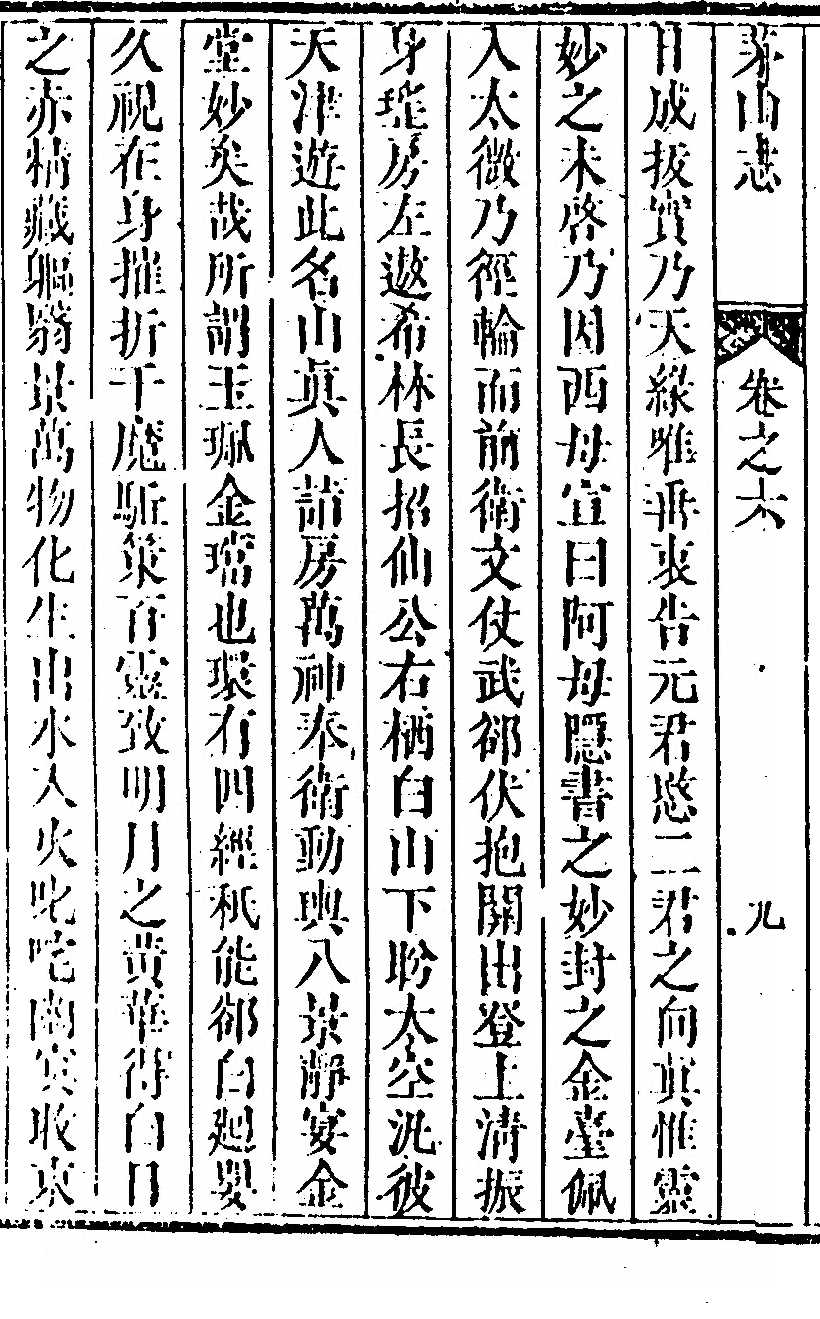 茅山志 卷之六 九
日成拔實乃天緣唯垂衷告元君愍二君之向真惟靈
妙之未啓乃因西母宣曰阿母隱書之妙封之金臺佩
入太微乃徑輪而前衛文仗武郤伏抱關出登上清振
身瓏房左遨希林長招仙公右栖白山下眄太空汎彼
天津遊此名山真人詣房萬神奉衛動與八景靜宴金
堂妙矣哉所謂玉珮金璫也環有四經秖能郤白迴嬰
久視在身摧折千魔駈策百靈致明月之黃華得白日
之赤精藏軀翳景萬物化生出水入火叱咤幽冥收束